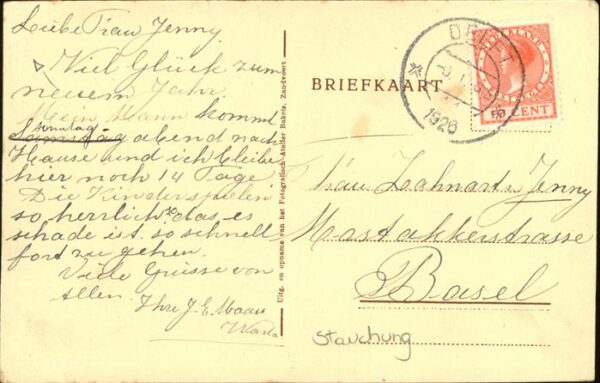 Liebe Frau Jenny.
Viel Glück zum
neuem Jahr.
Mein Mann kommt
Sonntag
Samstag abend nach
Hause und ich bleibe
hier noch 14 Tage
Die Kinder spielen
so herrlich das es
schade ist so schnell
fort zu gehen.
Viele Grüsse von
Allen.
Ihre J. E. Maan
Uitg. en opname van het Fotografisch Atelier Bakels, Zandvoort
BRIEFKAART
DELFT
1926
NEDERLAND
CENT
Frau Zahnarts Jenny
Mostakkerstrasse
Basel
Stauchung